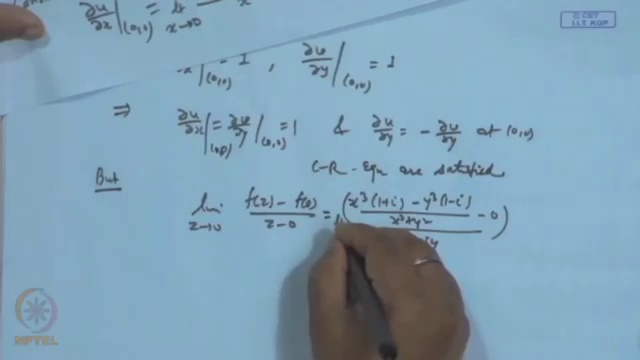 ∂u/∂x |(0,0) = lt x→0
© CET
I.I.T. KGP
∂x |(0,0) = 1 , ∂v/∂y |(0,0) = 1
⇒ ∂u/∂x |(0,0) = ∂v/∂y |(0,0) = 1 & ∂u/∂y = - ∂v/∂y at (0,0)
C-R-Equ are satisfied
But
lim z→0 f(z) - f(0) / z - 0 = ( x³(1+i) - y³(1-i) / x²+y² - 0 ) / iy
NPTEL